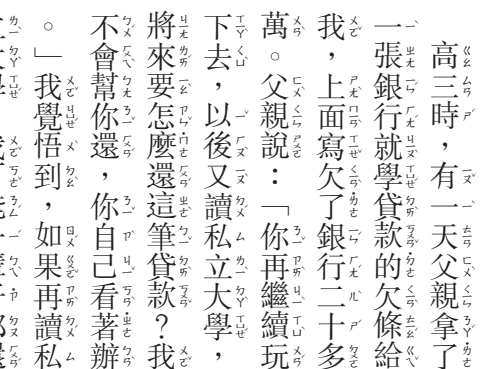 高三時，有一天父親拿了
一張銀行就學貸款的欠條給
我，上面寫欠了銀行二十多
萬。父親說：「你再繼續玩
下去，以後又讀私立大學，
將來要怎麼還這筆貸款？我
不會幫你還，你自己看著辦
。」我覺悟到，如果再讀私